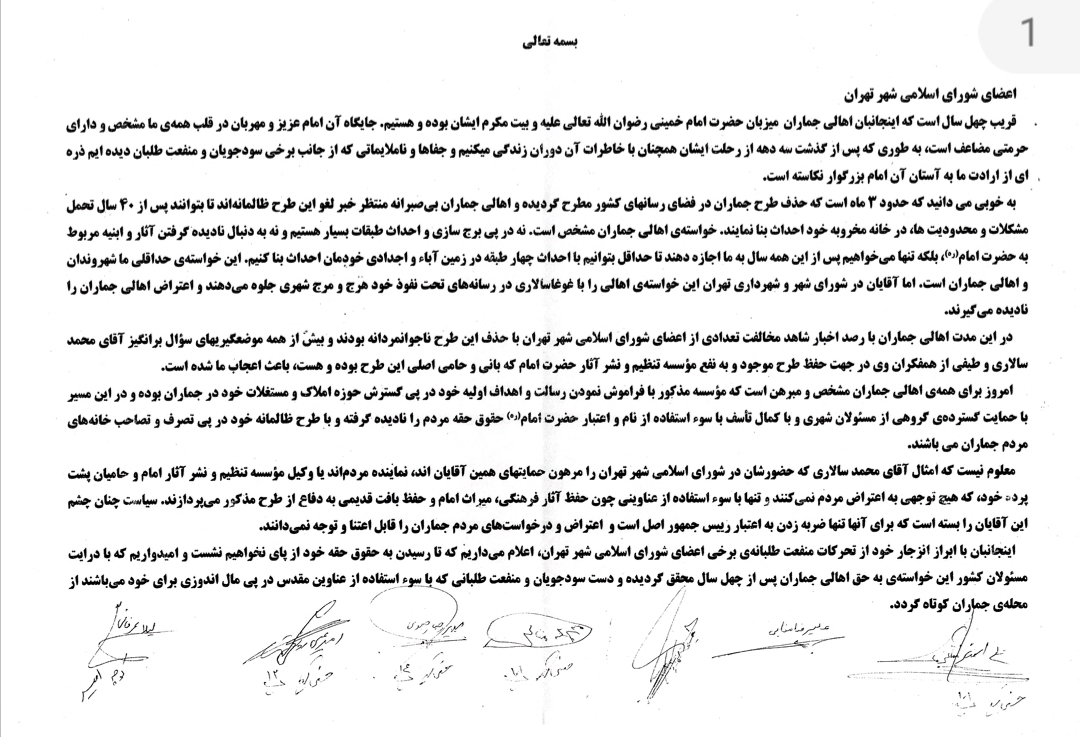 1
بسمه تعالی
اعضای شورای اسلامی شهر تهران
قریب چهل سال است که اینجانبان اهالی جماران میزبان حضرت امام خمینی رضوان الله تعالی علیه و بیت مکرم ایشان بوده و هستیم. جایگاه آن امام عزیز و مهربان در قلب همه‌ی ما مشخص و دارای
حرمتی مضاعف است، به طوری که پس از گذشت سه دهه از رحلت ایشان همچنان با خاطرات آن دوران زندگی میکنیم و جفاها و ناملایماتی که از جانب برخی سودجویان و منفعت طلبان دیده ایم ذره
ای از ارادت ما به آستان آن امام بزرگوار نکاسته است.
به خوبی می دانید که حدود ۳ ماه است که حذف طرح جماران در فضای رسانهای کشور مطرح گردیده و اهالی جماران بی‌صبرانه منتظر خبر لغو این طرح ظالمانه‌اند تا بتوانند پس از ۴۰ سال تحمل
مشکلات و محدودیت ها، در خانه مخروبه خود احداث بنا نمایند. خواسته‌ی اهالی جماران مشخص است. نه در پی برج سازی و احداث طبقات بسیار هستیم و نه به دنبال نادیده گرفتن آثار و ابنیه مربوط
به حضرت امام(ره)، بلکه تنها می‌خواهیم پس از این همه سال به ما اجازه دهند تا حداقل بتوانیم با احداث چهار طبقه در زمین آباء و اجدادی خودمان احداث بنا کنیم. این خواسته‌ی حداقلی ما شهروندان
و اهالی جماران است. اما آقایان در شورای شهر و شهرداری تهران این خواسته‌ی اهالی را با غوغاسالاری در رسانه‌های تحت نفوذ خود هرج و مرج شهری جلوه می‌دهند و اعتراض اهالی جماران را
نادیده می‌گیرند.
در این مدت اهالی جماران با رصد اخبار شاهد مخالفت تعدادی از اعضای شورای اسلامی شهر تهران با حذف این طرح ناجوانمردانه بودند و بیش از همه موضعگیریهای سؤال برانگیز آقای محمد
سالاری و طیفی از همفکران وی در جهت حفظ طرح موجود و به نفع مؤسسه تنظیم و نشر آثار حضرت امام که بانی و حامی اصلی این طرح بوده و هست، باعث اعجاب ما شده است.
امروز برای همه‌ی اهالی جماران مشخص و مبرهن است که مؤسسه مذکور با فراموش نمودن رسالت و اهداف اولیه خود در پی گسترش حوزه املاک و مستغلات خود در جماران بوده و در این مسیر
با حمایت گسترده‌ی گروهی از مسئولان شهری و با کمال تأسف با سوء استفاده از نام و اعتبار حضرت امام(ره) حقوق حقه مردم را نادیده گرفته و با طرح ظالمانه خود در پی تصرف و تصاحب خانه‌های
مردم جماران می باشند.
معلوم نیست که امثال آقای محمد سالاری که حضورشان در شورای اسلامی شهر تهران را مرهون حمایتهای همین آقایان اند، نماینده مردم‌اند یا وکیل مؤسسه تنظیم و نشر آثار امام و حامیان پشت
پرده خود، که هیچ توجهی به اعتراض مردم نمی‌کنند و تنها با سوء استفاده از عناوینی چون حفظ آثار فرهنگی، میراث امام و حفظ بافت قدیمی به دفاع از طرح مذکور می‌پردازند. سیاست چنان چشم
این آقایان را بسته است که برای آنها تنها ضربه زدن به اعتبار رییس جمهور اصل است و اعتراض و درخواست‌های مردم جماران را قابل اعتنا و توجه نمی‌دانند.
اینجانبان با ابراز انزجار خود از تحرکات منفعت طلبانه‌ی برخی اعضای شورای اسلامی شهر تهران، اعلام می‌داریم که تا رسیدن به حقوق حقه خود از پای نخواهیم نشست و امیدواریم که با درایت
مسئولان کشور این خواسته‌ی به حق اهالی جماران پس از چهل سال محقق گردیده و دست سودجویان و منفعت طلبانی که با سوء استفاده از عناوین مقدس در پی مال اندوزی برای خود می‌باشند از
محله‌ی جماران کوتاه گردد.